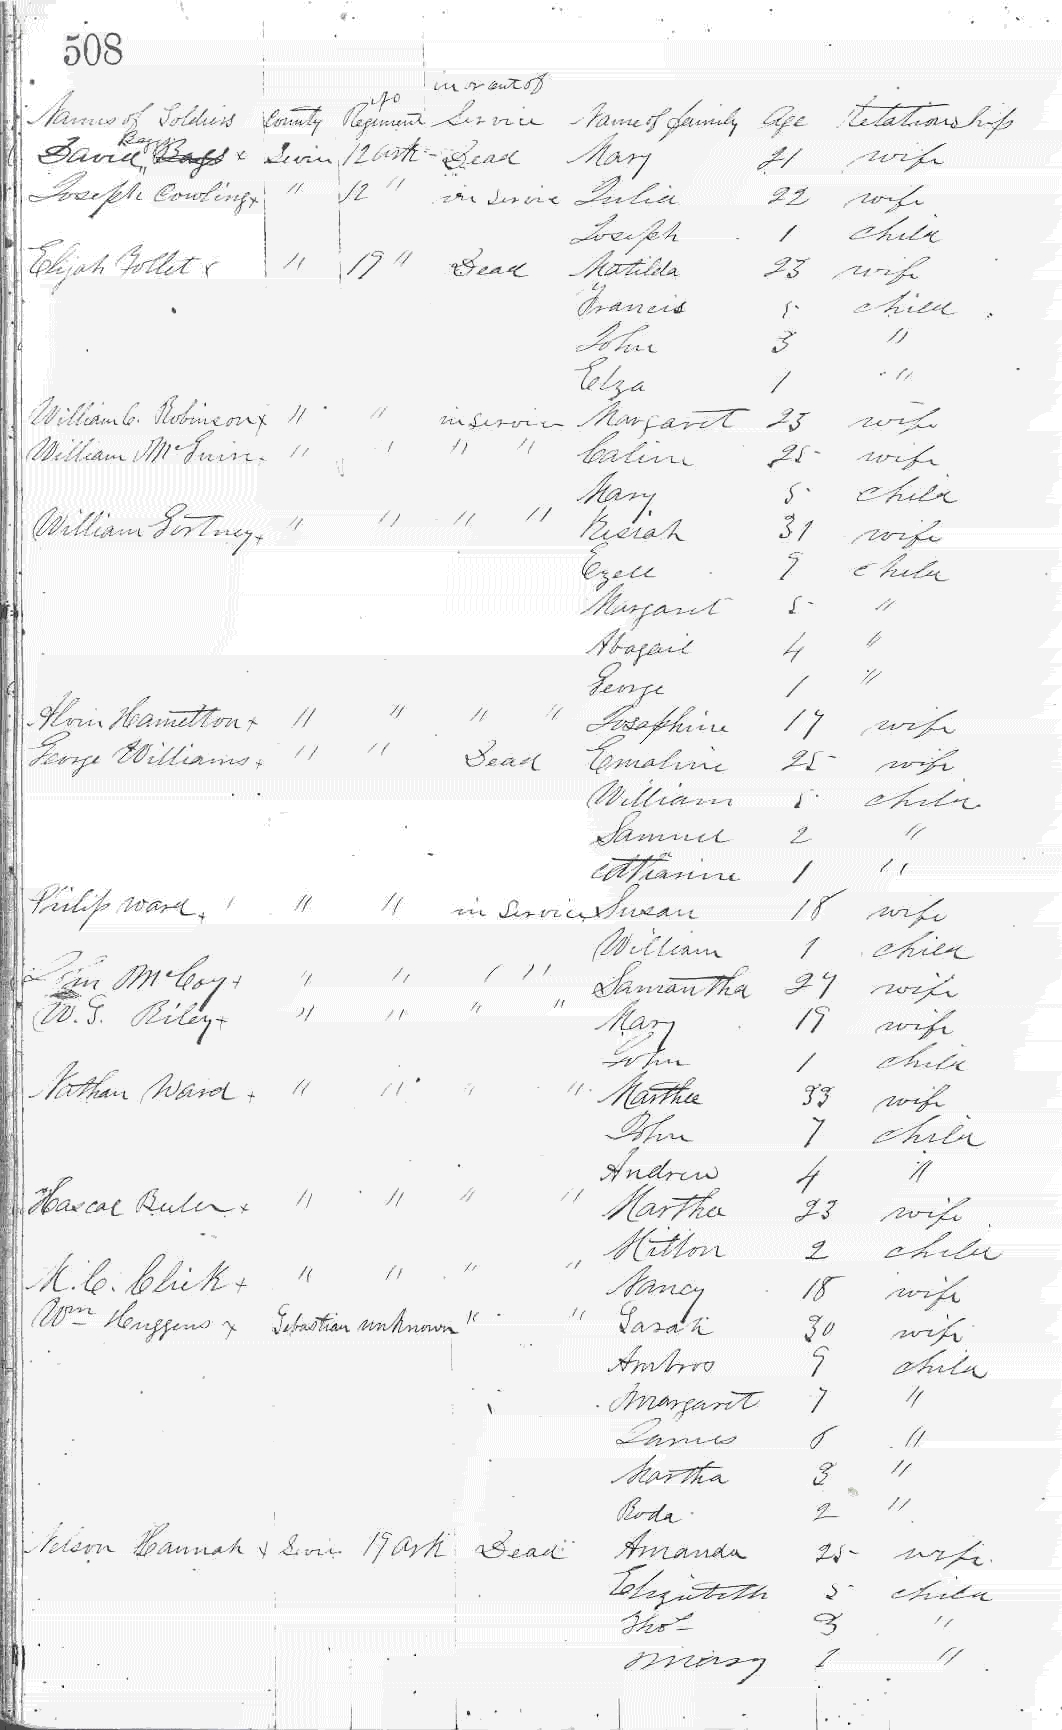 508
in or out of
No
Names of Soldiers County Regiment Service Name of family Age Relationship
David Bays x Sevier 12 Ark - Dead Mary 21 wife
Joseph Cowling x " 12 " in service Julia 22 wife
Joseph 1 child
Elijah Follet x " 19 " Dead Matilda 23 wife
Francis 5 child
John 3 "
Elza 1 "
William C. Robinson x " " in service Margaret 23 wife
William McGuire " " " " Caline 25 wife
Mary 5 child
William Gortney x " " " " Kisiah 31 wife
Ezell 9 child
Margaret 5 "
Abagail 4 "
George 1 "
Alvin Hamelton x " " " " Josephine 17 wife
George Williams x " " Dead Emaline 25 wife
William 5 child
Samuel 2 "
Catharine 1 "
Philip Ward x " " in Service Susan 18 wife
William 1 child
McCoy x " " " " Samantha 27 wife
W. G. Riley x " " " " Mary 19 wife
John 1 child
Nathan Ward x " " " " Martha 33 wife
John 7 child
Andrew 4 "
Hascal x " " " " Martha 23 wife
Milton 2 child
M. C. Click x " " " " Nancy 18 wife
Wm Huggens x Sebastian unknown " " Sarah 30 wife
Ambros 9 child
Margaret 7 "
James 6 "
Martha 3 "
Roda 2 "
Nelson Hannah x Sevier 19 Ark Dead Amanda 25 wife
Elizabeth 5 child
Thos 3 "
1 "